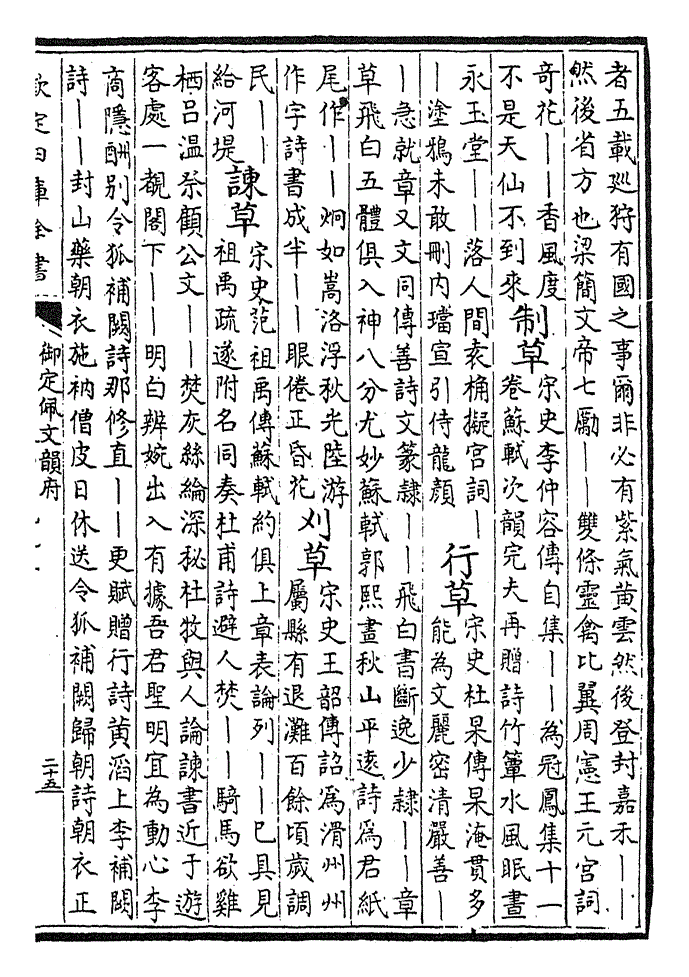 者五載廵狩有國之事爾非必有紫氣黄雲然後登封嘉禾——
然後省方也梁簡文帝七勵——雙條靈禽比翼周憲王元宫詞
奇花——香風度
不是天仙不到來
制草
宋史李仲容傳自集——為冠鳳集十一
卷蘇軾次韻完夫再贈詩竹簟水風眠晝
永玉堂——落人間袁桷擬宫詞—
—塗鴉未敢刪内璫宣引侍龍顔
行草
宋史杜杲傳杲淹貫多
能為文麗密清嚴善—
—急就章又文同傳善詩文篆隷——飛白書斷逸少隷——章
草飛白五體俱入神八分尤妙蘇軾郭熙畫秋山平逺詩爲君紙
尾作——炯如嵩洛浮秋光陸游
作字詩書成半——眼倦正昏花
刈草
宋史王韶傳詔爲滑州州
屬縣有退灘百餘頃歲調
民——
給河堤
諫草
宋史范祖禹傳蘇軾約俱上章表論列——已具見
祖禹疏遂附名同奏杜甫詩避人焚——騎馬欲雞
栖吕温祭顧公文——焚灰絲綸深秘杜牧與人論諫書近于遊
客處一覩閣下——明白辨婉出入有據吾君聖明宜為動心李
商隱酬别令狐補闕詩那修直——更賦贈行詩黄滔上李補闕
詩——封山藥朝衣施衲僧皮日休送令狐補闕歸朝詩朝衣正
欽定四庫全書
御定佩文韻府
二十五